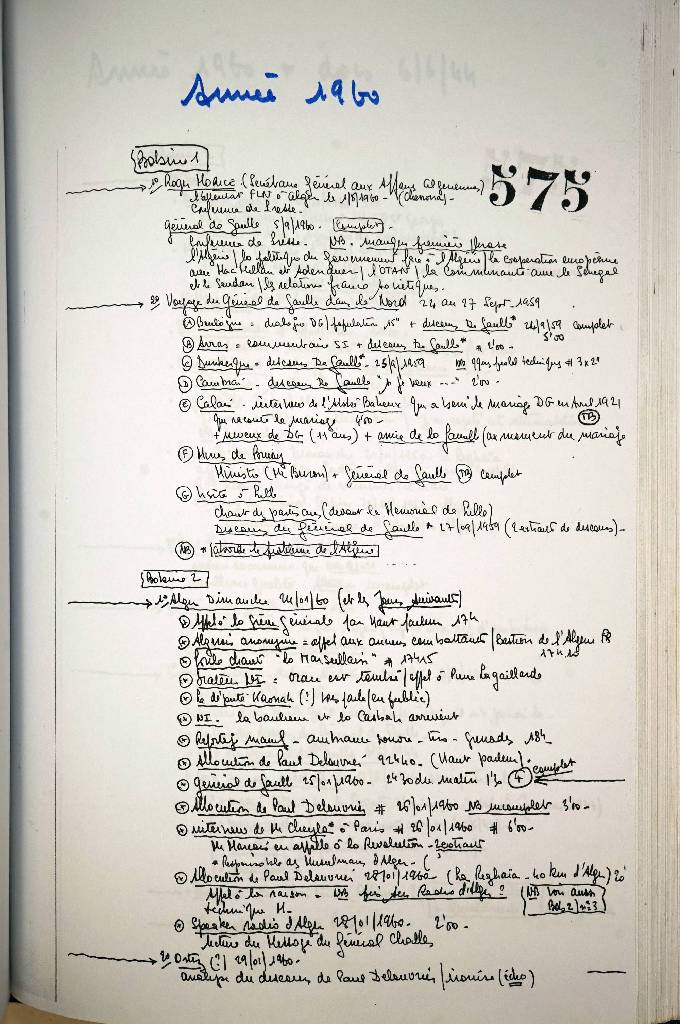 Année 1960
575
Bobine 1
1º Roger MORICE (Secrétaire Général aux Affaires Algériennes)
FLN à Alger le 1/8/1960 - (Chenoua) -
Conférence de Presse.
Général de Gaulle 5/9/1960. Complet.
Conférence de Presse. NB. manque première phrase
l'Algérie / la politique du Gouvernement face à l'Algérie / la Coopération européenne
avec MacMillan et Adenauer / l'OTAN / la Communauté avec le Sénégal
et le Soudan / les relations franco soviétiques.
2º Voyage du Général de Gaulle dans le Nord 24 au 27 Sept. 1959
A Boulogne = dialogue DG / population 15" + discours De Gaulle* 26/9/59 complet
5'00
B Arras = commentaire SI + discours De Gaulle* = 2'00 -
C Dunkerque = discours De Gaulle* - 25/9/1959 NB qques probl techniques # 3 x 2"
D Cambrai - discours De Gaulle "Si je veux ---" 2'00 -
E Calais - interview de l'Abbé Baheux qui a béni le mariage DG en Avril 1921
qui raconte le mariage 4'00 - TB
+ neveux de DG (11 ans) + amie de la famille (au moment du mariage
F Mines de Bruay
Ministre (Mr Buron) + Général de Gaulle TB complet
G Visite à Lille
Chant du partisan (devant le Mémorial de Lille)
Discours du Général de Gaulle * 27/09/1959 (extrait de discours) -
NB * aborde le problème de l'Algérie
Bobine 2
1º Alger Dimanche 24/01/60 (et les Jours Suivants)
Appel à la Grève Générale par Haut parleur 17h
Algérois anonyme = appel aux anciens combattants / Bastion de l'Algérie FR
17h10
Foule chant "la Marseillaise" # 17h15
NI = Oran est tombé / appel à Pierre Lagaillarde
Le député Kaouah (?) très faible / en public)
NI - la banlieue et la Casbah arrivent
Reportage manif - ambiance sonore - tirs - Grenades 18h -
Allocution de Paul Delouvrier 22h40 - (Haut parleur) -
Général de Gaulle 25/01/1960 - 2h30 du matin 1'30 4 complet
Allocution de Paul Delouvrier # 26/01/1960 NB incomplet 3'00 -
interview de Mr Cheyla* à Paris # 26/01/1960 # 6'00 -
en appelle à la Révolution -
* Responsable des Musulmans d'Alger - (
Allocution de Paul Delouvrier 28/01/1960 (La Reghaia - 40 km d'Alger) 20'
Appel à la raison = NB Radio d'Alger ? NB voir aussi
technique M - Bob 2 / nº 3
Speaker radio d'Alger 28/01/1960 - 2'00 -
lecture du Message du Général Challe
2º Ortiz (?) 29/01/1960 -
analyse du discours de Paul Delouvrier / ironise (écho)